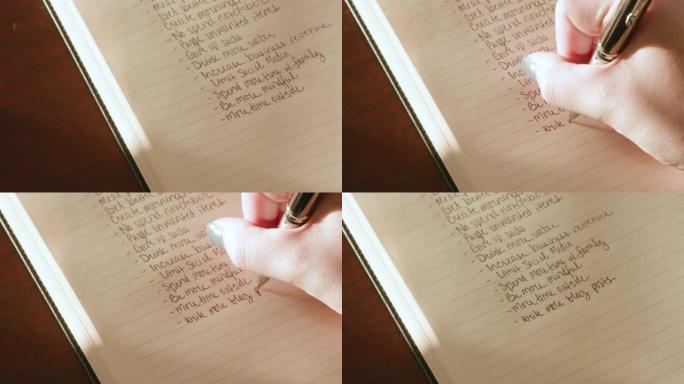 Get better
- Create morning
- No spend november
- Purge unwanted items
- Give up soda
- Drink more water
- Increase business revenue
- Limit Social Media
- Spend more time w/ family
- Be more mindful
- More time outside
Get better
- Create morning
- No spend november
- Purge unwanted items
- Give up soda
- Drink
- Be
- More
- Write
Get better
- Create morning
- No spend november
- Purge unwanted items
- Give up soda
- Drink more
- Increase
- Limit Social
- Spend more time
- Be more mindful
- More time outside
- Write more blog p
Get better
- Create morning
- No spend november
- Purge unwanted items
- Give up soda
- Drink more water
- Increase business revenue
- Limit Social Media
- Spend more time w/ family
- Be more mindful
- More time outside
- Write more blog posts